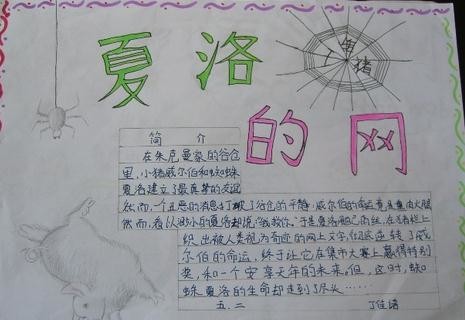 夏洛
的网
猪
简 介
在朱克曼家的谷仓
里，小猪威尔伯和蜘蛛
夏洛建立了最真挚的友谊
然而，一个丑恶的消息打破了谷仓的平静：威尔伯的命运竟是熏肉火腿
然而，看似渺小的夏洛却说：“我救你。”于是夏洛用自己的丝，在猪栏上
织出被人类视为奇迹的网上文字，彻底逆转了威
尔伯的命运，终于让它在集市大赛上赢得特别
奖，和一个安享天年的未来。但，这时，蜘
蛛夏洛的生命却走到了尽头……
五.二 丁佳